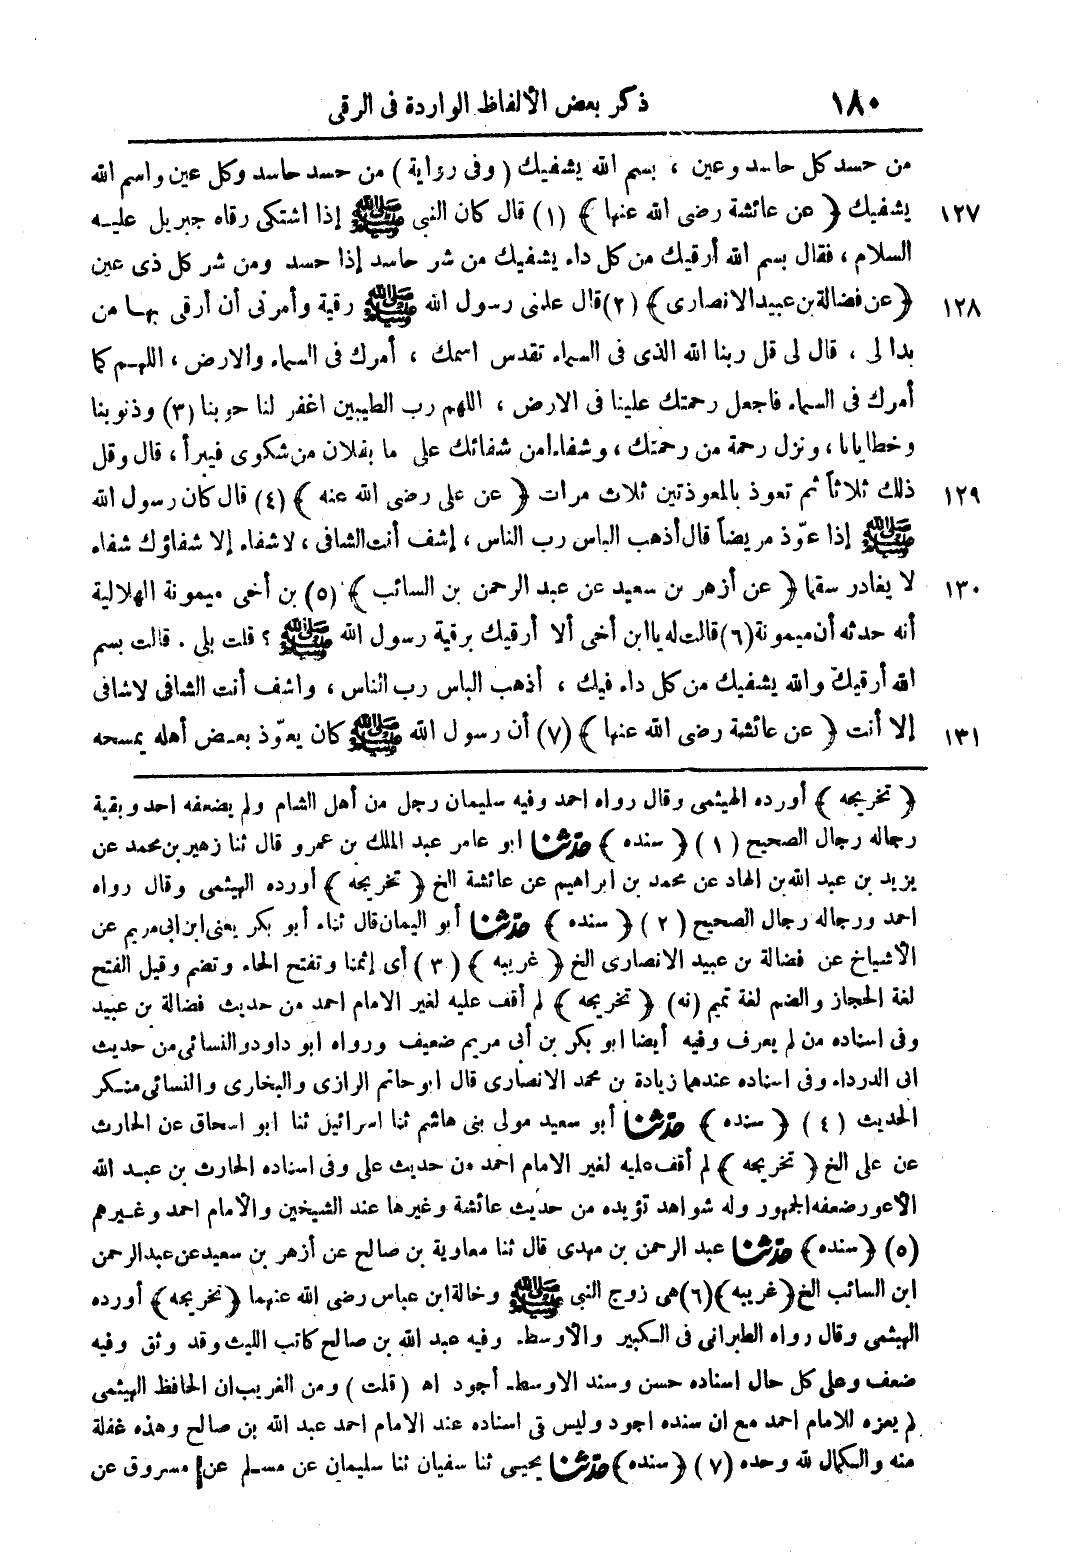 ١٨٠ ذكر بعض الألفاظ الواردة فى الرقى
من حسد كل حاسد وعين ، بسم الله يشفيك (وفى رواية) من حسد حاسد وكل عين واسم الله
١٢٧ يشفيك ﴿ عن عائشة رضى الله عنها ﴾ (١) قال كان النبى ﷺ إذا اشتكى رقاه جبريل عليه
السلام ، فقال بسم الله أرقيك من كل داء يشفيك من شر حاسد إذا حسد ومن شر كل ذى عين
١٢٨ ﴿عن فضالة بن عبيد الانصارى﴾ (٢) قال علمنى رسول الله ﷺ رقية وأمرنى أن أرقى بها من
بدا لى ، قال لى قل ربنا الله الذى فى السماء تقدس اسمك ، أمرك فى السماء والارض ، اللهم كما
أمرك فى السماء فاجعل رحمتك علينا فى الارض ، اللهم رب الطيبين اغفر لنا حوبنا (٣) وذنوبنا
وخطايانا ، ونزل رحمة من رحمتك ، وشفاء من شفائك على ما بفلان من شكوى فيبرأ ، قال وقل
١٢٩ ذلك ثلاثاً ثم تعوذ بالمعوذتين ثلاث مرات ﴿ عن على رضى الله عنه ﴾ (٤) قال كان رسول الله
ﷺ إذا عوّذ مريضاً قال أذهب الباس رب الناس ، إشف أنت الشافى ، لا شفاء إلا شفاؤك شفاء
١٣٠ لا يغادر سقما ﴿ عن أزهر بن سعيد عن عبد الرحمن بن السائب ﴾ (٥) بن أخى ميمونة الهلالية
أنه حدثه أن ميمونة (٦) قالت له يا ابن أخى ألا أرقيك برقية رسول الله ﷺ ؟ قلت بلى . قالت بسم
الله أرقيك والله يشفيك من كل داء فيك ، أذهب الباس رب الناس ، واشف أنت الشافى لا شافى
١٣١ إلا أنت ﴿ عن عائشة رضى الله عنها ﴾ (٧) أن رسول الله ﷺ كان يعوّذ بعض أهله يمسحه
﴿ تخريجه ﴾ أورده الهيثمى وقال رواه احمد وفيه سليمان رجل من أهل الشام ولم يضعفه احد وبقية
رجاله رجال الصحيح (١) ﴿ سنده ﴾ حدثنا ابو عامر عبد الملك بن عمرو قال ثنا زهير بن محمد عن
يزيد بن عبد الله بن الهاد عن محمد بن ابراهيم عن عائشة الخ ﴿ تخريجه ﴾ أورده الهيثمى وقال رواه
احمد ورجاله رجال الصحيح (٢) ﴿ سنده ﴾ حدثنا أبو اليمان قال ثناء أبو بكر يعنى ابن ابى مريم عن
الأشياخ عن فضالة بن عبيد الانصارى الخ ﴿ غريبه ﴾ (٣) أى إثمنا وتفتح الحاء وتضم وقيل الفتح
لغة الحجاز والضم لغة تميم (نه) ﴿ تخريجه ﴾ لم أقف عليه لغير الامام احمد من حديث فضالة بن عبيد
وفى اسناده من لم يعرف وفيه أيضا ابو بكر بن أبى مريم ضعيف ورواه ابو داود والنسائى من حديث
ابى الدرداء وفى اسناده عندهما زيادة بن محمد الانصارى قال ابو حاتم الرازى والبخارى والنسائى منكر
الحديث (٤) ﴿ سنده ﴾ حدثنا أبو سعيد مولى بنى هاشم ثنا اسرائيل ثنا ابو اسحاق عن الحارث
عن على الخ ﴿ تخريجه ﴾ لم أقف عليه لغير الامام احمد من حديث على وفى اسناده الحارث بن عبد الله
الأعور ضعفه الجمهور وله شواهد تؤيده من حديث عائشة وغيرها عند الشيخين والأمام احمد وغيرهم
(٥) ﴿سنده﴾ حدثنا عبد الرحمن بن مهدى قال ثنا معاوية بن صالح عن أزهر بن سعيد عن عبد الرحمن
ابن السائب الخ ﴿غريبه﴾ (٦) هى زوج النبى ﷺ وخالة ابن عباس رضى الله عنهما ﴿تخريجه﴾ أورده
الهيثمى وقال رواه الطبرانى فى الكبير والأوسط وفيه عبد الله بن صالح كاتب الليث وقد وثق وفيه
ضعف وعلى كل حال اسناده حسن وسند الاوسط أجود اه (قلت) ومن الغريب ان الحافظ الهيثمى
لم يعزه للامام احمد مع ان سنده اجود وليس فى اسناده عند الامام احمد عبد الله بن صالح وهذه غفلة
منه والكمال لله وحده (٧) ﴿سنده﴾ حدثنا يحيى ثنا سفيان ثنا سليمان عن مسلم عن مسروق عن